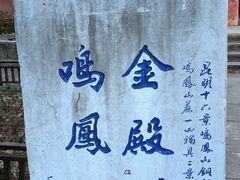 昆明十六景鳴鳳山銅
鳴鳳山麓一山獨具二景
金殿
鳴鳳